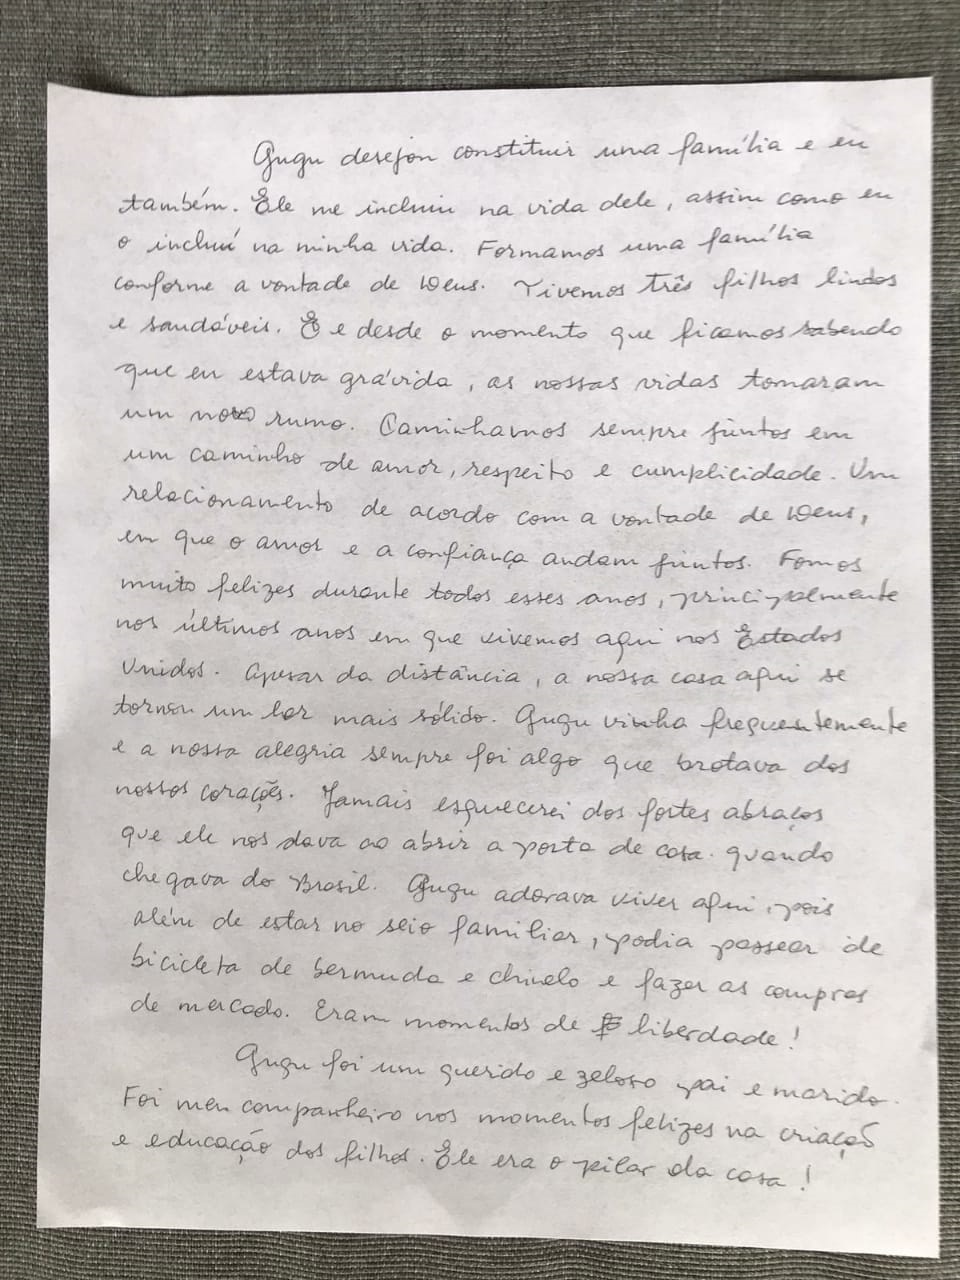 Gugu desejou constituir uma família e eu
também. Ele me incluiu na vida dele, assim como eu
o incluí na minha vida. Formamos uma família
conforme a vontade de Deus. Tivemos três filhos lindos
e saudáveis. E e desde o momento que ficamos sabendo
que eu estava grávida, as nossas vidas tomaram
um novo rumo. Caminhamos sempre juntos em
um caminho de amor, respeito e cumplicidade. Um
relacionamento de acordo com a vontade de Deus,
em que o amor e a confiança andam juntos. Fomos
muito felizes durante todos esses anos, principalmente
nos últimos anos em que vivemos aqui nos Estados
Unidos. Apesar da distância, a nossa casa aqui se
tornou um lar mais sólido. Gugu vinha frequentemente
e a nossa alegria sempre foi algo que brotava dos
nossos corações. Jamais esquecerei dos fortes abraços
que ele nos dava ao abrir a porta de casa. quando
chegava do Brasil. Gugu adorava viver aqui, pois
além de estar no seio familiar, podia passear de
bicicleta de bermuda e chinelo e fazer as compras
de mercado. Eram momentos de liberdade!
Gugu foi um querido e zeloso pai e marido.
Foi meu companheiro nos momentos felizes na criação
e educação dos filhos. Ele era o pilar da casa!